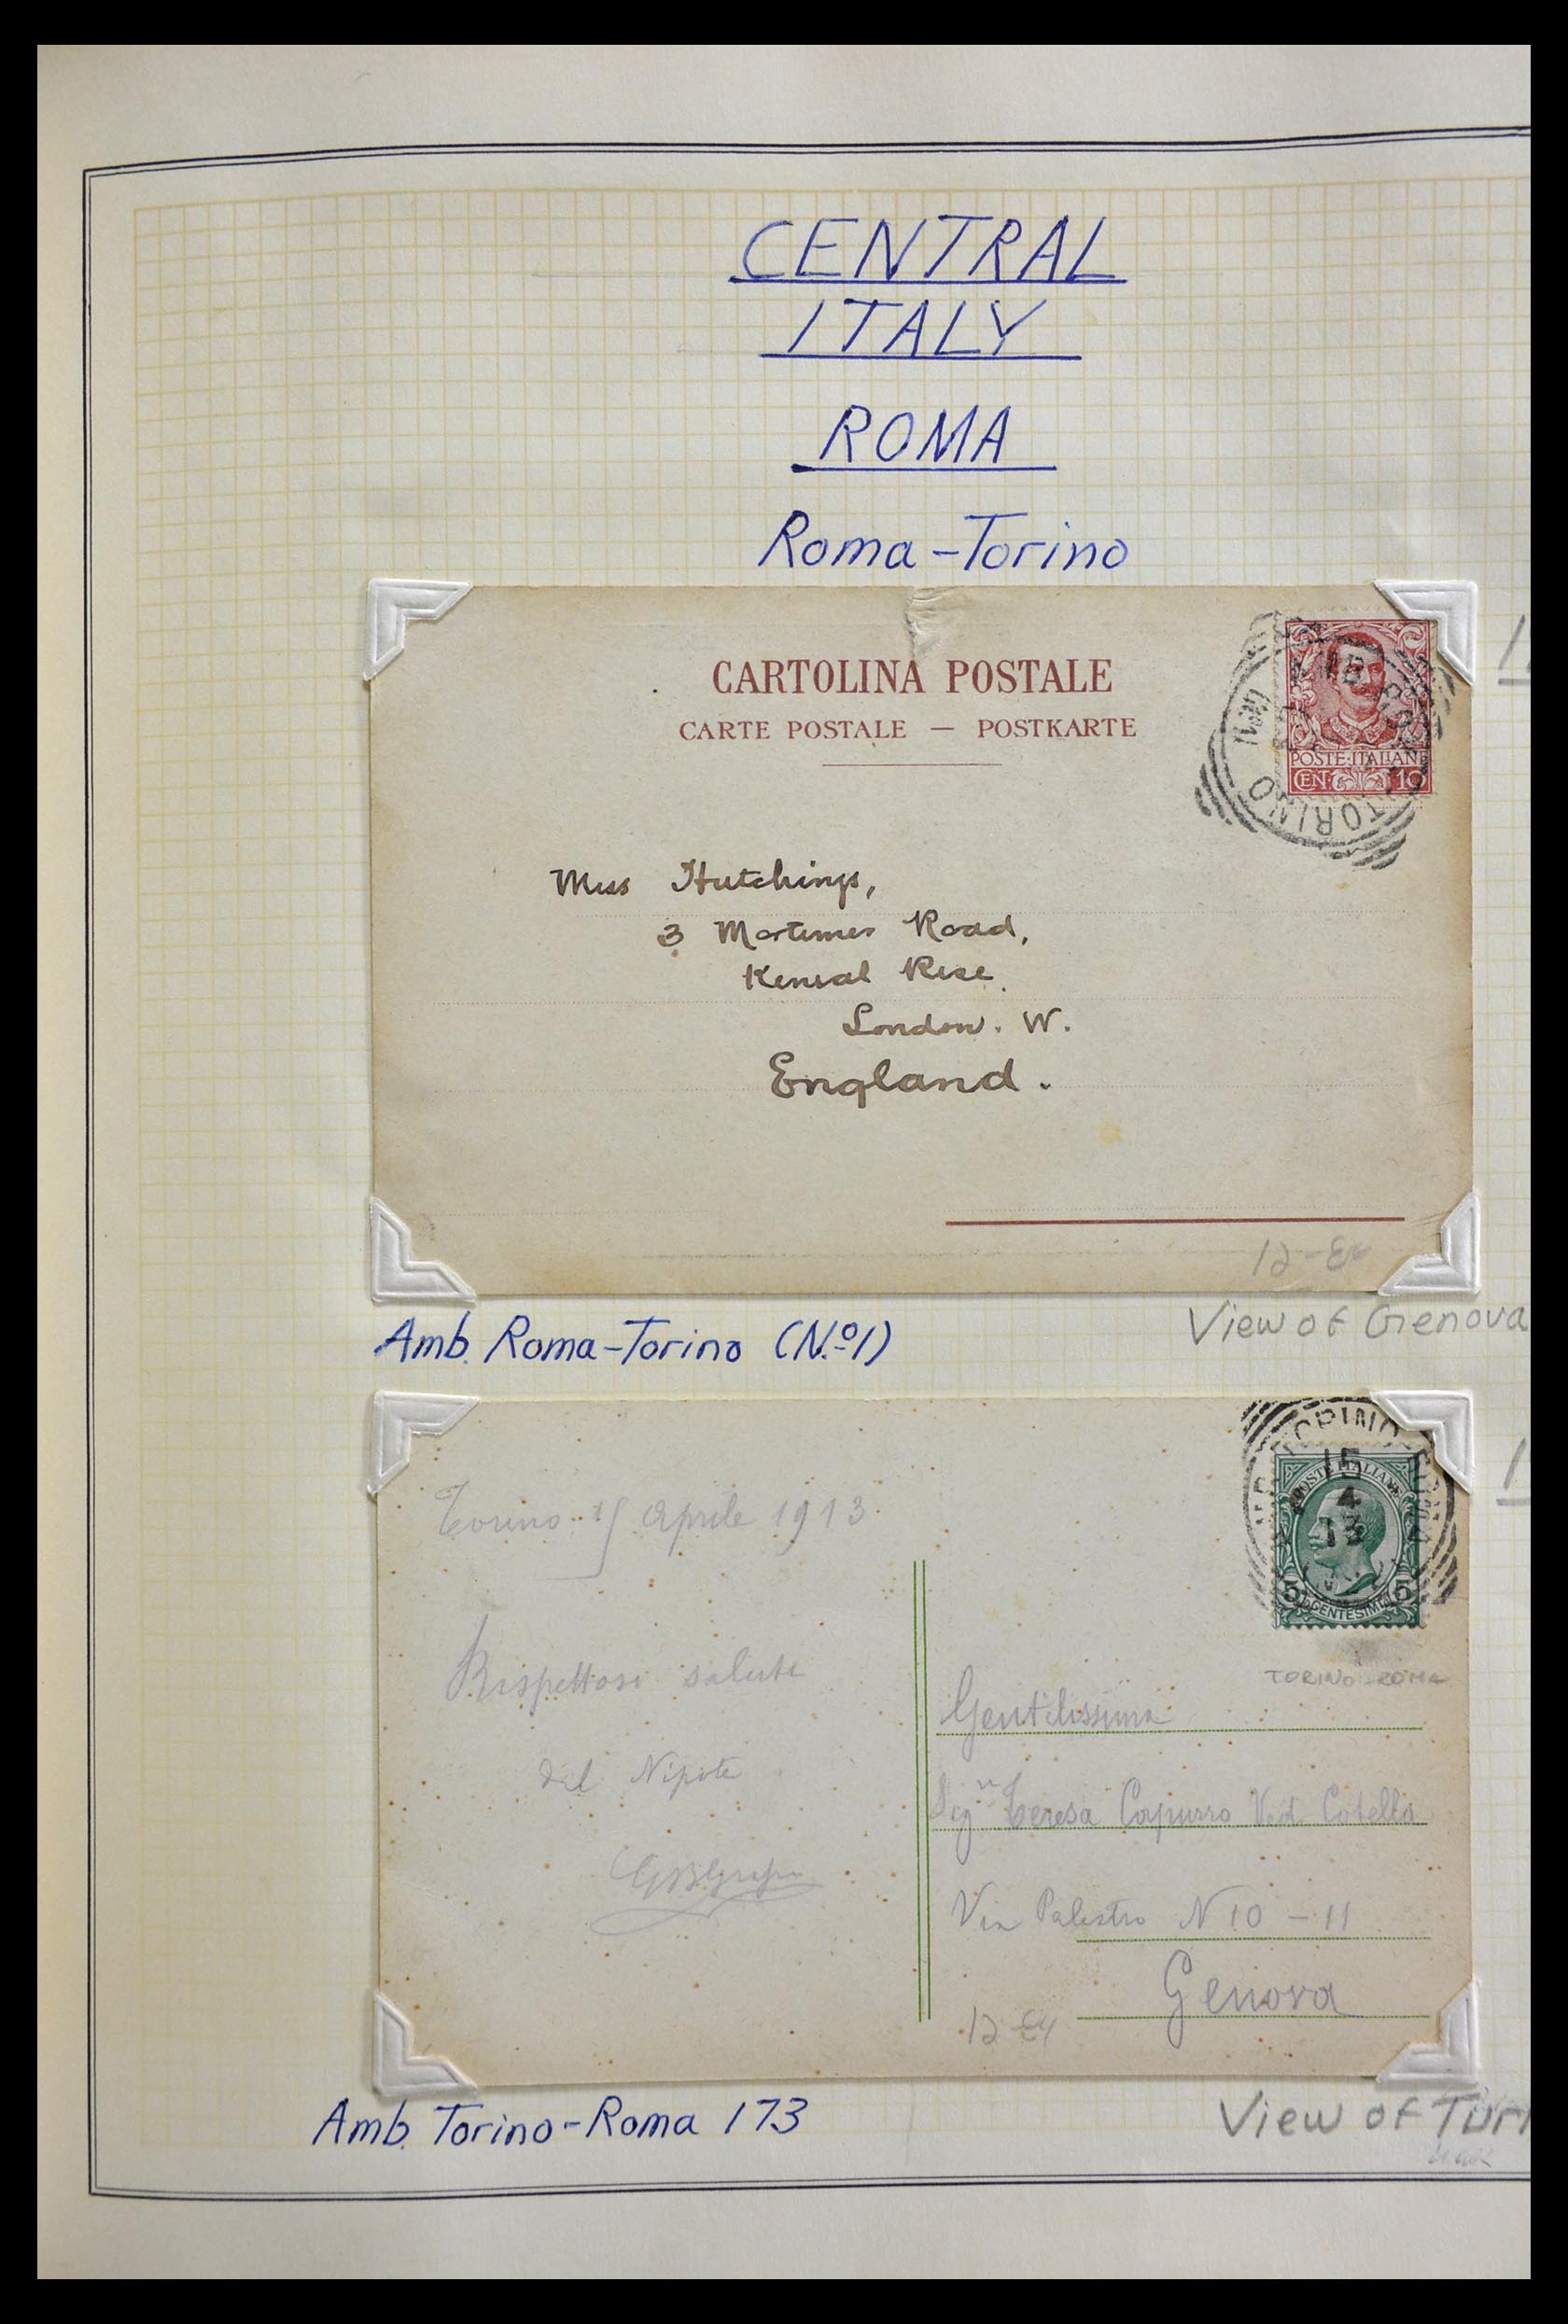 CENTRAL
ITALY
ROMA
Roma-Torino
CARTOLINA POSTALE
CARTE POSTALE — POSTKARTE
POSTE·ITALIANE
CEN. 10
TORINO
Miss Hutchings,
3 Mortimer Road,
Kensal Rise
London. W.
England.
12-
Amb. Roma-Torino (N.º1)
View of Genova
TORINO
15
4
13
POSTE ITALIANE
5 CENTESIMI 5
Torino 15 Aprile 1913
Rispettosi saluti
dal Nipote
TORINO-ROMA
Gentilissima
Sigra Teresa Capurro Ved. Cotella
Via Palestro N 10 - 11
Genova
12
Amb. Torino-Roma 173
View of Turi